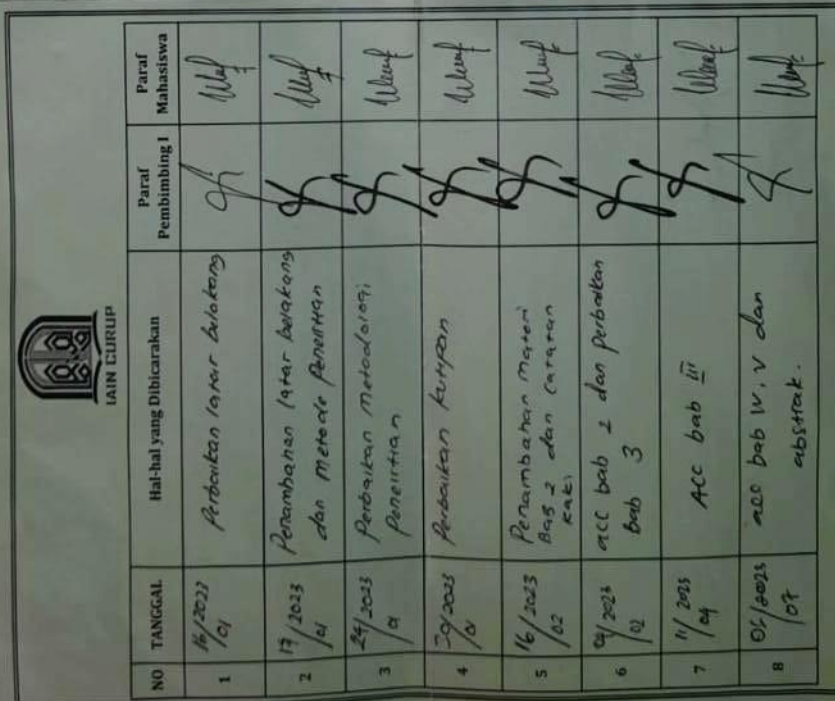 IAIN CURUP
NO TANGGAL Hal-hal yang Dibicarakan Paraf Pembimbing I Paraf Mahasiswa
1 16/2023 /01 Perbaikan latar belakang
2 17/2023 /01 Penambahan latar belakang
dan metode Penelitian
3 24/2023 /01 Perbaikan metodologi
Penelitian
4 30/2023 /01 Perbaikan kutipan
5 16/2023 /02 Penambahan materi
Bab 2 dan catatan
kaki
6 2023 /02 acc bab 2 dan perbaikan
bab 3
7 11/2023 /04 ACC bab III
8 2023 /07 acc bab IV, V dan
abstrak.